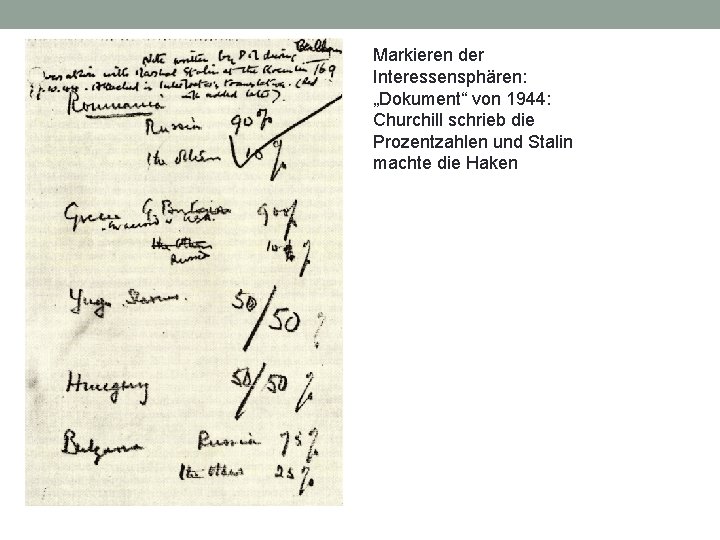 Note written by P.M. during
conversation with Marshal Stalin at the Kremlin
9.10.44. Attached is Interpreter's translation. (Red
ink added later)
169
Roumania
Russia 90%
The others 10%
Greece G. Britain 90%
in accord w USA.
the others 10%
Russia
Yugo Slavia 50/50%
Hungary 50/50%
Bulgaria Russia 75%
the others 25%
Markieren der
Interessensphären:
„Dokument“ von 1944:
Churchill schrieb die
Prozentzahlen und Stalin
machte die Haken